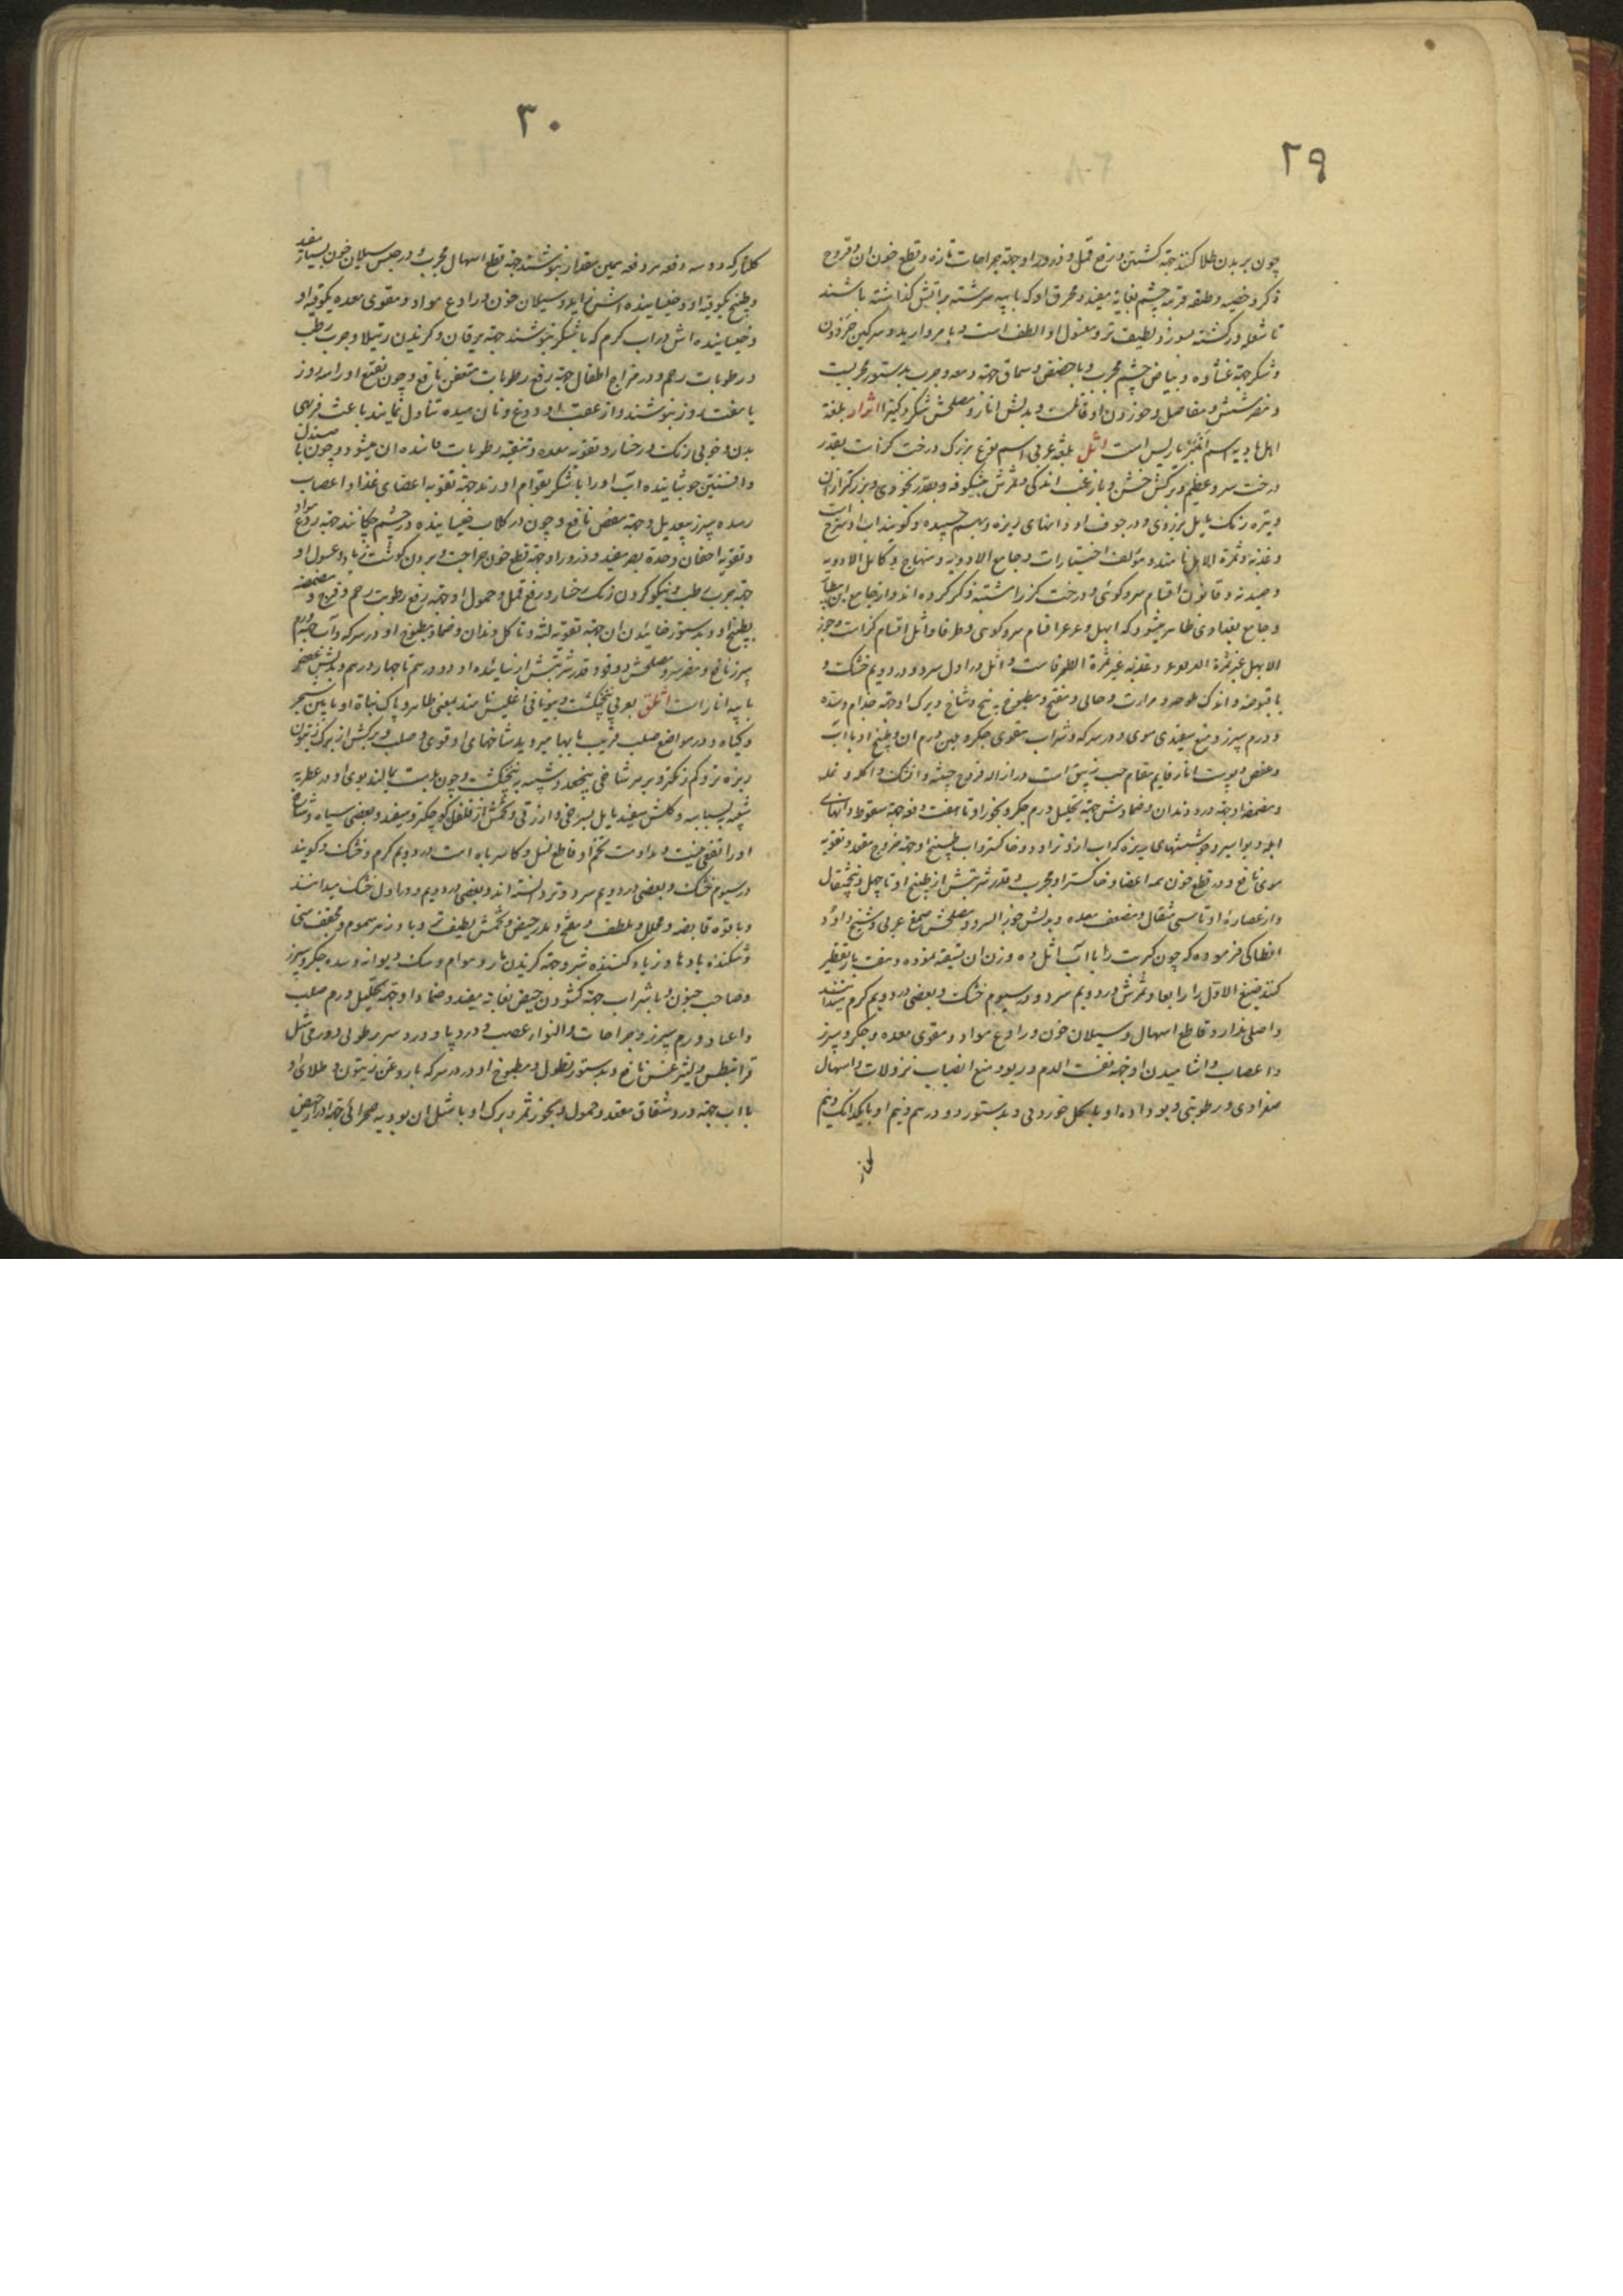 ۲۹
چون بر بدن طلا کنند جهة کشتن و رفع قمل و ذرور او جهة جراحات تازه و قطع خون آن و قروح
ذکر و خصیه و طبقه قرنیه چشم بغایة مفید و محرق او که با پیه سرشته بر آتش گذاشته باشند
تا شعله ور گشته بسوزد لطیف تر و مغسول او الطف است و با مروارید و سرکین
و شکر جهة غشاوه و بیاض چشم مجرب و با حضض و سماق جهة دمعه و جرب بدستور مجربست
و مضر شش و مفاصل و خوردن او قاتلست و بدلش انار و مصلحش شکر و کتیرا اثرار بلغة
اهل بادیه اسم انبرباریس است اثل بلغة عربی اسم نوع بزرک درخت کزاست بقدر
درخت سرو عظیم و برکش خشن و با زغب اندکی و ثمرش بیشکوفه و بقدر نخودی و بزرکتر از آن
و تیره رنک مایل بزردی و در جوف او دانهای ریزه و بهم چسبیده و کویند
و عذبه و ثمرة الاثل نامند و مؤلف اختیارات و جامع الادویه و منهاج و کامل الادویه
و صیدنه و قانون اقسام سرو کوهی و درخت کز را مشتبه ذکر کرده اند و از جامع ابن بیطار
و جامع بغدادی ظاهر میشود که ابهل و عرعر اقسام سرو کوهی و طرفا و اثل اقسام کزاست و جوز
الابهل غیر ثمرة العرعر و عذبه غیر ثمرة الطرفاست و اثل در اول سرد و در دویم خشک و
با قبوضة و اندک ملوحة و مرارت و جالی و مفتح و مطبوخ بیخ و شاخ و برک او جهة جذام و سده
و ورم سپرز و منع سفیدی موی و در سرکه و شراب مقوی جکر و مبین ورم آن و طبیخ او با آب
و عفص و پوست انار قایم مقام حب زیبق است در ازاله قروح خبیثه و آتشک و اکله و نمله
و مضمضه او جهة درد دندان و ضمادش جهة تحلیل ورم جکر و بخور او تا هفت دفعه جهة سقوط دانهای
ابله و بواسیر و جوششهای ریزه که آب از او تراود و خاکستر او با طبیخ او جهة خروج مقعد و تقویة
موی نافع و در قطع خون همه اعضا و خاکستر او مجرب و قدر شربتش از طبیخ او تا چهل و پنج مثقال
و از عصاره او تا سی مثقال و مضعف معده و بدلش جوز السرو و مصلحش صمغ عربی و شیخ داود
انطاکی فرموده که چون کبریت را با آب اثل ده وزن آن تسقیه نموده و هفت بار تقطیر
کنند صبغ الاول را رابعا و ثمرش در دویم سرد و در سیوم خشک و بعضی در دویم کرم میدانند
و اصلی ندارد و قاطع اسهال و سیلان خون و رادع مواد و مقوی معده و جکر و سپرز
و اعصاب و آشامیدن او جهة نفث الدم و ربو و منع انصباب نزولات و اسهال
صفراوی و رطوبتی و بو داده او با کل خوردنی و بدستور دو درهم و نیم او با یکدانک و نیم
کلنار
۳۰
کلنار که دو سه دفعه هر دفعه بهمین مقدار بنوشند جهة قطع اسهال مجرب و در حبس سیلان خون بسیار مفید
و طبیخ یکوقیه او و خیسانیده اش نیز رافع سیلان خون و رادع مواد و مقوی معده یکوقیه او
و خیسانیده اش در آب کرم که با شکر بنوشند جهة یرقان و کزیدن رتیلا و جرب رطب
و رطوبات رحم و در مزاج اطفال جهة رفع رطوبات متعفن نافع و چون نقیع او را سه روز
یا هفت روز بنوشند و از عقب او دوغ و نان میده تناول نمایند باعث فربهی
بدن و خوبی رنک رخسار و تقویه معده و تنقیه رطوبات فاسده آن میشود و چون با صندل
و افسنتین جوشانیده آب او را با شکر بقوام آورند جهة تقویه اعضای غذا و اعصاب
و سده سپرز بیعدیل و جهة مغص نافع و چون در کلاب خیسانیده در چشم چکانند جهة ردع مواد
و تقویه اجفان و حدة بصر مفید و ذرور او جهة قطع خون جراحت و بردن کوشت زیاد و غسول او
جهة جرب رطب و نیکو کردن رنک رخسار و رفع قمل و حمول او جهة رفع رطوبت رحم و قروح و مضمضه
بطبیخ او و بدستور خائیدن آن جهة تقویه لثه و تاکل دندان و ضماد مطبوخ او در سرکه و آب جهة ورم
سپرز نافع و مضر سر و مصلحش دوقو و قدر شربتش از نیا او دو درهم تا چهار درهم و بدلش عفص
یا پیه انار است اثلق بعربی پنجنکشت و بیونانی اغلیس نامند بمعنی طاهر و پاک نباة او ما بین شجر
و کیاه و در مواضع صلب قریب بآبها میروید شاخهای او قوی و صلب و برکش از برک زیتون
ریزه تر و کم رنکتر و بر هر شاخی پنج عدد و شبیه به پنجنکشت و چون بدست بمالند بوی او در عطریه
شبیه به بسباسه و کلش سفید مایل بسرخی و ازرقی و تخمش از فلفل کوچکتر و سفید و بعضی سیاه و
او را تقی نیست و مداومت تخم او قاطع نسل و کاسر باه است در دویم کرم و خشک و کویند
در سیوم خشک و بعضی در دویم سرد و تر دانسته اند و بعضی در دویم و در اول خشک میدانند
و با قوة قابضه و محلل و ملطف و مفتح و مدر حیض و تخمش لطیف تر و با و زهر سموم و مجفف منی
و شکننده بادها و زیاد کننده شیر و جهة کزیدن مار و هوام و سک دیوانه و سده جکر و سپرز
و صاحب جنون و با شراب جهة کشودن حیض بغایة مفید و ضماد او جهة تحلیل ورم صلب
و اعیا و ورم سپرز و جراحات و التوا عصب و درد پا و درد سر رطوبی و ورمی مثل
قرانیطس و لیثرغس نافع و بدستور نطول و مطبوخ او در سرکه با روغن زیتون و طلای او
با آب جهة درد شقاق مقعد و حمول و بخور ثمر و برک او با مثل آن پودینه صحرائی جهة ادرار حیض